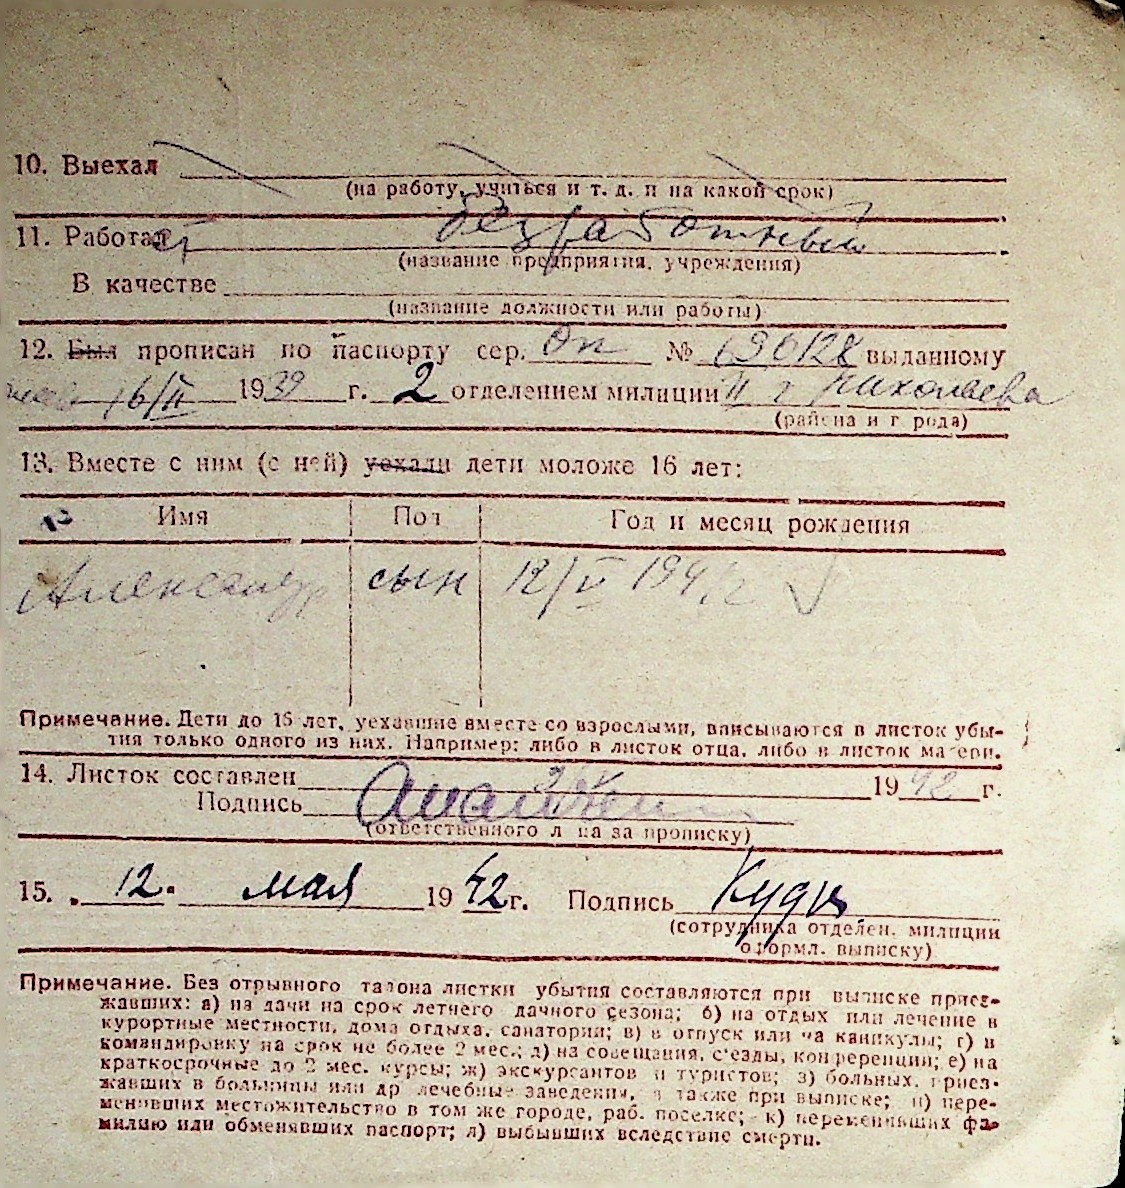 10. Выехал
(на работу, учиться и т. д. и на какой срок)
11. Работает безработный
(название предприятия, учреждения)
В качестве
(название должности или работы)
12. Был прописан по паспорту сер. Оп № 690128 выданному
16/II 1939 г. 2 отделением милиции II г Николаева
(района и города)
13. Вместе с ним (с ней) уехали дети моложе 16 лет:
Имя Пол Год и месяц рождения
Александр сын 12/V 1941 г
Примечание. Дети до 16 лет, уехавшие вместе со взрослыми, вписываются в листок убы-
тия только одного из них. Например: либо в листок отца, либо в листок матери.
14. Листок составлен 1942 г.
Подпись
(ответственного лица за прописку)
15. 12. мая 1942 г. Подпись Кудн
(сотрудника отделен. милиции
оформл. выписку)
Примечание. Без отрывного талона листки убытия составляются при выписке приез-
жавших: а) на дачи на срок летнего дачного сезона; б) на отдых или лечение в
курортные местности, дома отдыха, санатории; в) в отпуск или на каникулы; г) в
командировку на срок не более 2 мес.; д) на совещания, с'езды, конференции; е) на
краткосрочные до 2 мес. курсы; ж) экскурсантов и туристов; з) больных, приез-
жавших в больницы или др лечебные заведения, а также при выписке; и) пере-
менивших местожительство в том же городе, раб. поселке; к) переменивших фа-
милию или обменявших паспорт; л) выбывших вследствие смерти.